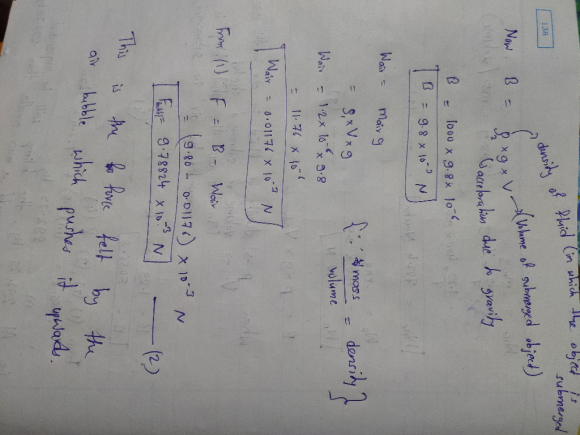 136
density of fluid (in which the object is submerged
Now B = ρ₂ × g × V → (Volume of submerged object)
↳ acceleration due to gravity
B = 1000 × 9.8 × 10⁻⁶
B = 9.8 × 10⁻³ N
Wair = mair g
= ρ₁ × V × g { ∵ mass / volume = density }
Wair = 1.2 × 10⁻⁶ × 9.8
= 11.76 × 10⁻⁶
Wair = 0.01176 × 10⁻³ N
From (1) F = B - Wair
= (9.80 - 0.01176) × 10⁻³ N
= 9.78824 × 10⁻³ N (2)
This is the force felt by the
air bubble which pushes it upwards.